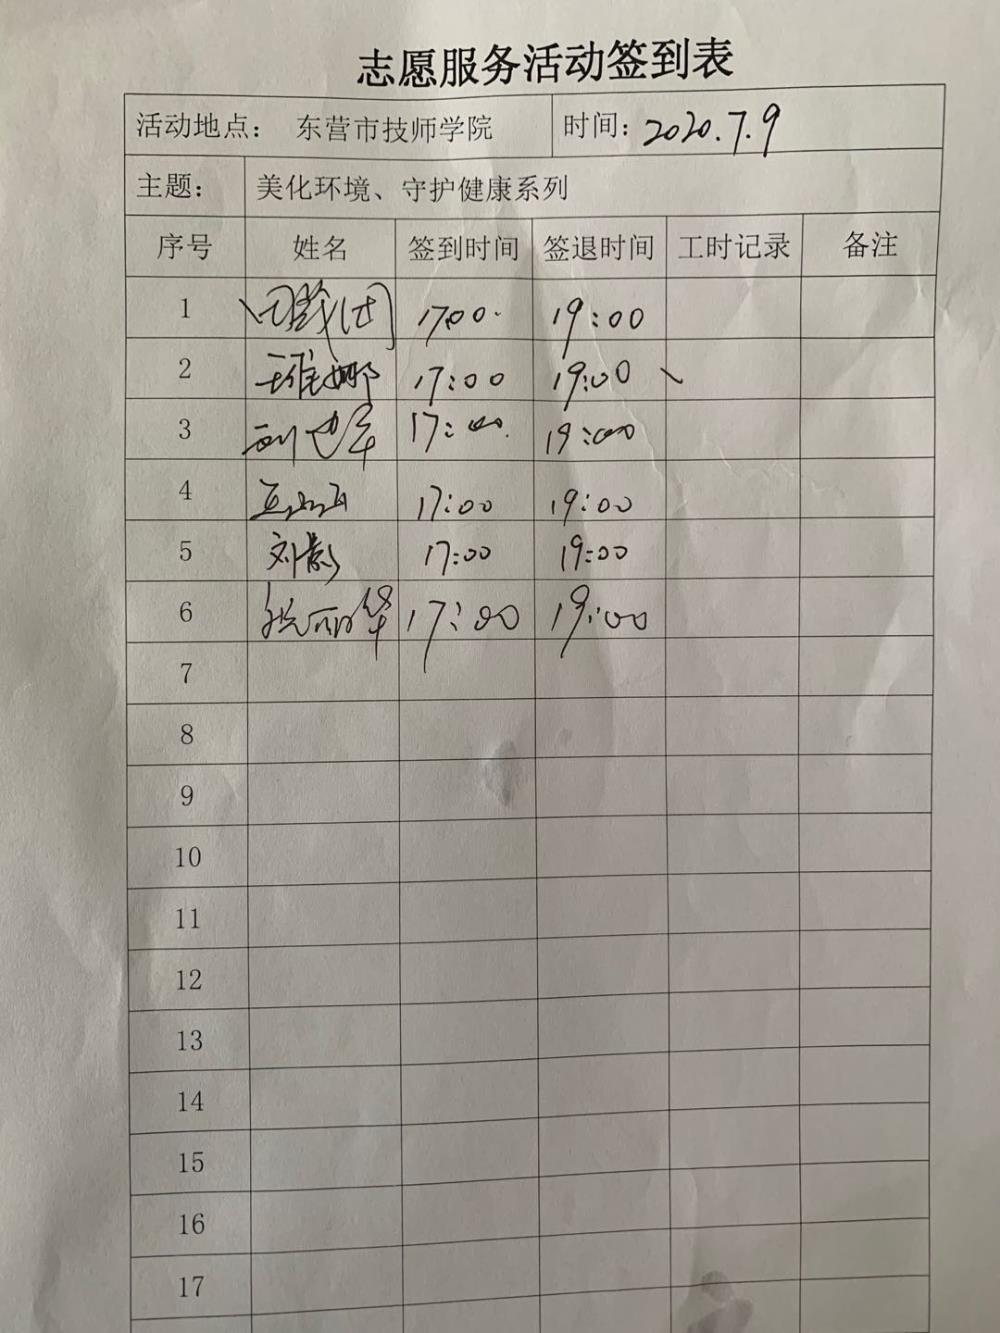 志愿服务活动签到表
活动地点： 东营市技师学院 时间：2020.7.9
主题： 美化环境、守护健康系列
序号 姓名 签到时间 签退时间 工时记录 备注
1 17:00 19:00
2 王维娜 17:00 19:00
3 17:00 19:00
4 17:00 19:00
5 刘彭 17:00 19:00
6 17:00 19:00
7
8
9
10
11
12
13
14
15
16
17